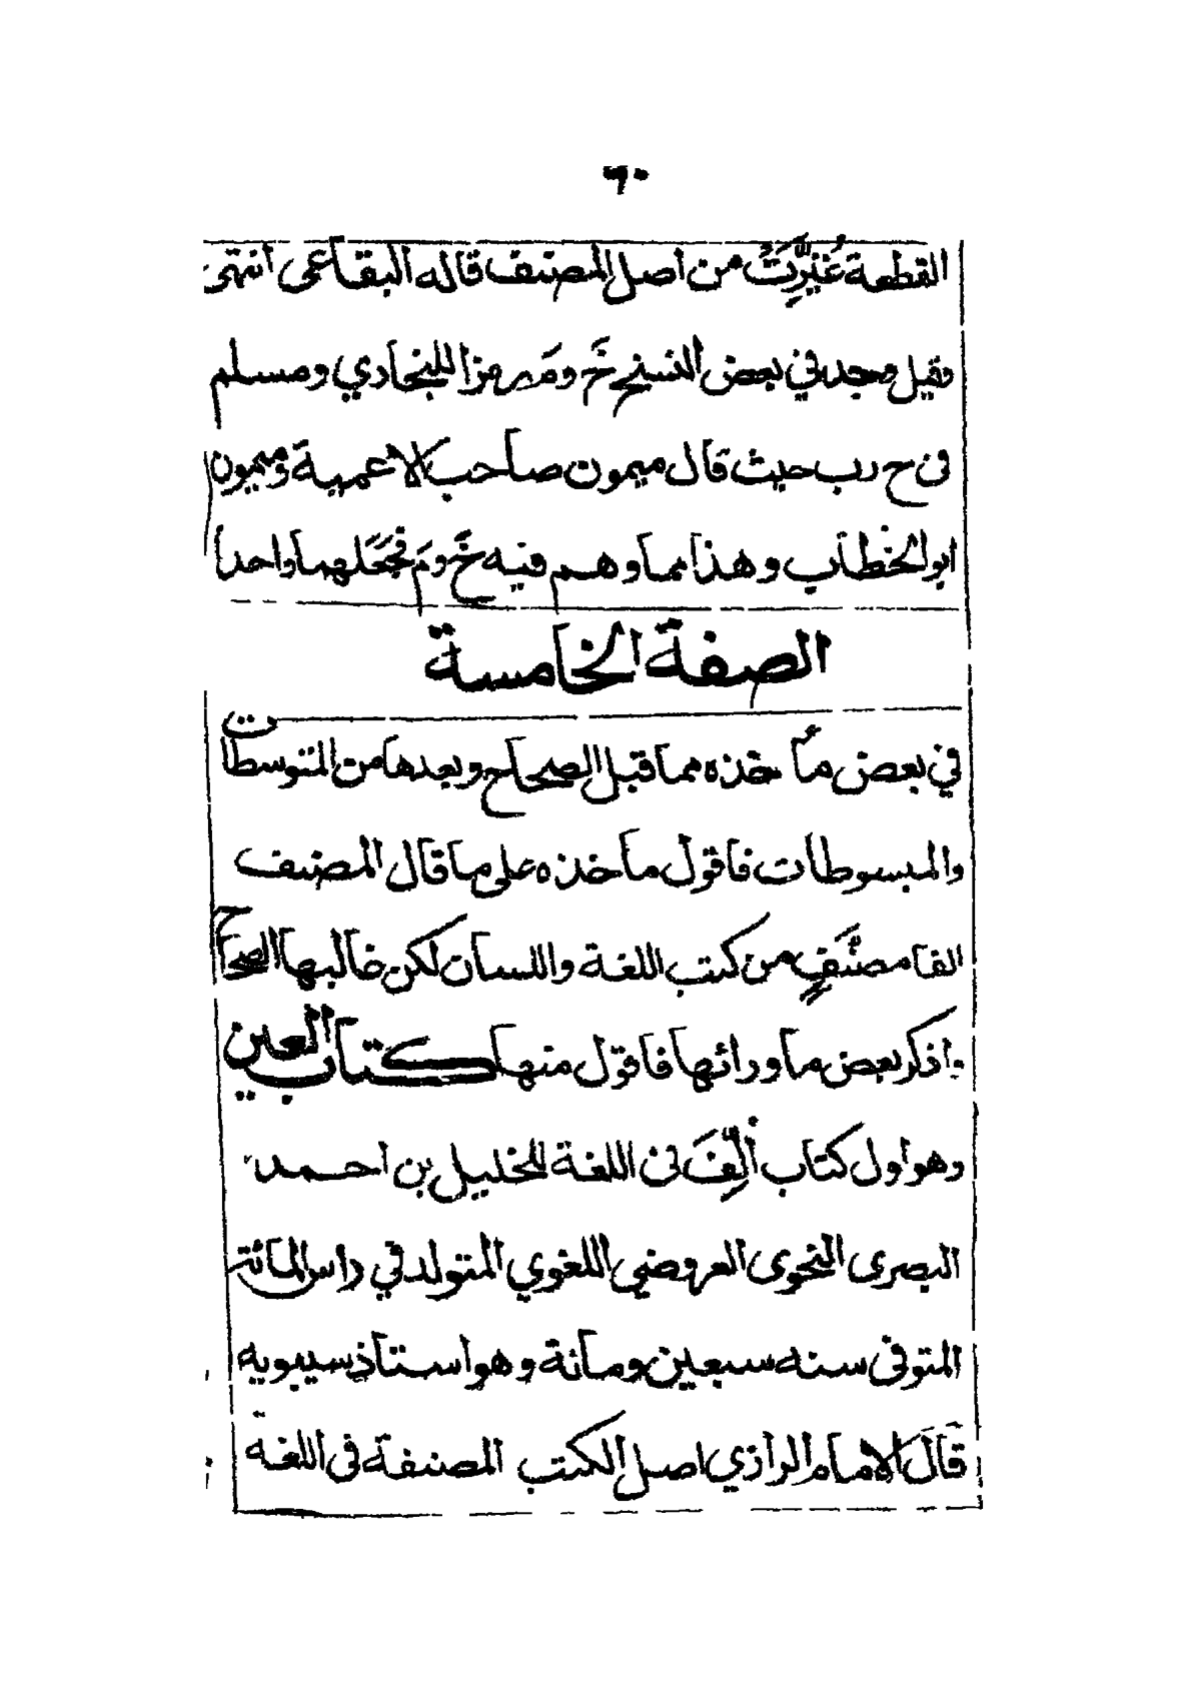 ٦٠
القطعة غُيِّرَتْ من اصل المصنف قاله البقاعى انتهى
وقيل وجد في بعض النسخ خَ ومَ رمزا للبخاري ومسلم
فى ح رب حيث قال ميمون صاحب الاعمية وميمون
ابو الخطاب وهذا مما وهم فيه خَ ومَ فجَعَلهما واحدا
الصفة الخامسة
في بعض مأخذه مما قبل الصحاح وبعدها من المتوسطات
والمبسوطات فاقول مأخذه على ما قال المصنف
الفا مصنَّفٍ من كتب اللغة واللسان لكن غالبها الصحاح
واذكر بعض ما ورائها فاقول منها كتاب العين
وهو اول كتاب أُلِّفَ فى اللغة للخليل بن احمد
البصرى النحوى العروضي اللغوي المتولد في راس المائة
المتوفى سنه سبعين ومائة وهو استاذ سيبويه
قال الامام الرازي اصل الكتب المصنفة فى اللغة